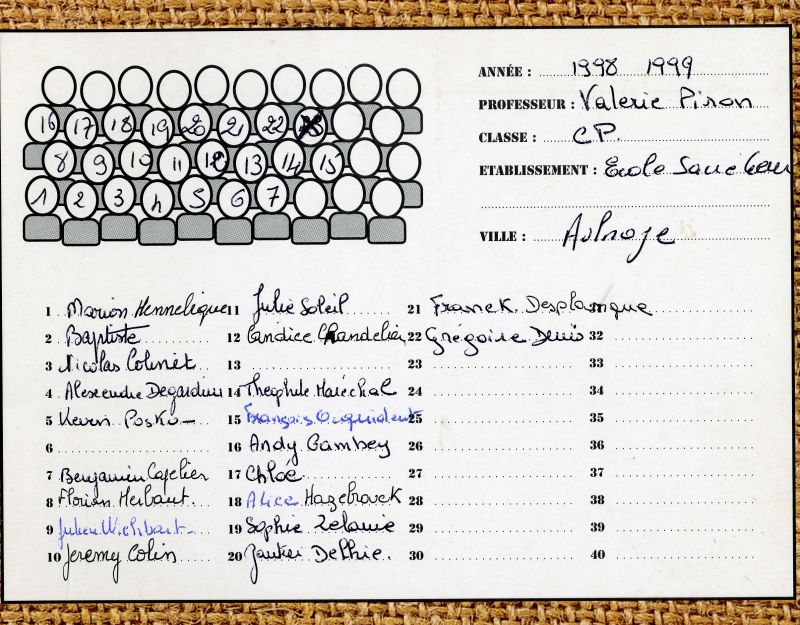 16 17 18 19 20 21 22
8 9 10 11 12 13 14 15
1 2 3 4 5 6 7
ANNÉE : 1998 1999
PROFESSEUR : Valerie Piron
CLASSE : CP.
ETABLISSEMENT : École Sacré Coeur
VILLE : Aulnoye
1 Marion Hennelique
2 Baptiste
3 Nicolas Colinet
4 Alexandre Degardin
5 Kevin Posko
6
7 Benjamin Capelier
8 Florian Herbaut.
9 Julien Wichbart
10 Jeremy Colin
11 Julie Soleil
12 Candice Chandelier
13
14 Théophile Maréchal
15 François Ocquident
16 Andy Gambey
17 Chloé.
18 Alice Hazebrouck
19 Sophie Lelauie
20 Gautier Delhie.
21 Franck Desplanque
22 Grégoire Denis
23
24
25
26
27
28
29
30
32
33
34
35
36
37
38
39
40